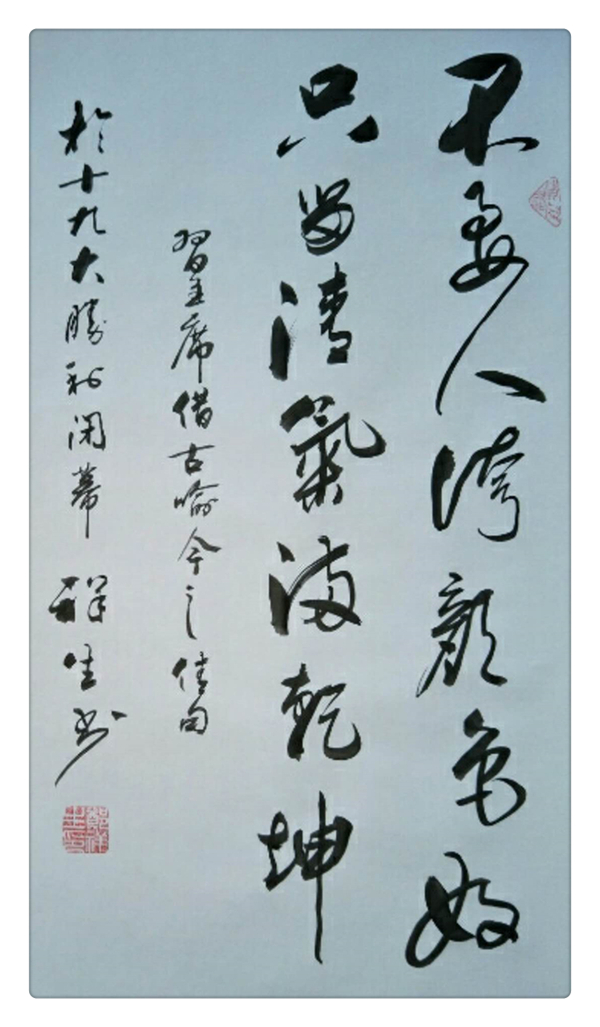 不要人誇顏色好
只留清氣滿乾坤
習主席借古喻今之佳句
於十九大勝利闭幕 祥生书